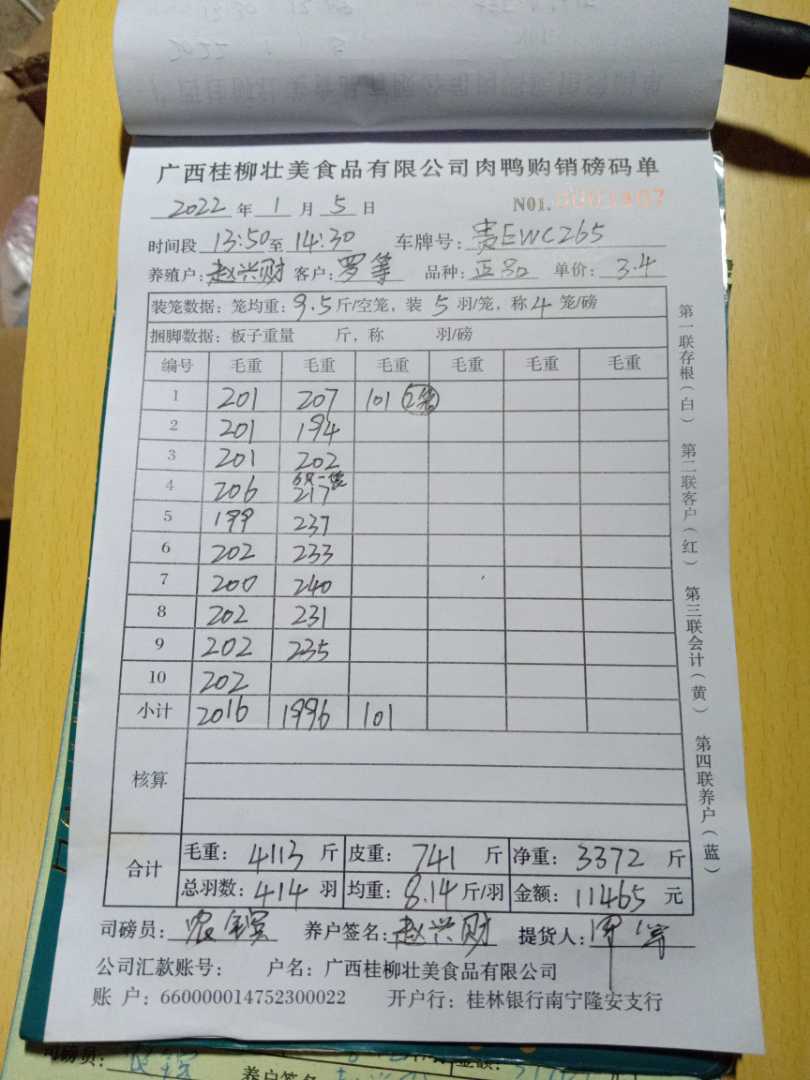 广西桂柳壮美食品有限公司肉鸭购销磅码单
2022 年 1 月 5 日 N01. 0001407
时间段 13:50 至 14:30 车牌号: 贵EWC265
养殖户: 赵兴财 客户: 罗等 品种: 正品 单价: 3.4
装笼数据: 笼均重: 9.5 斤/空笼, 装 5 羽/笼, 称 4 笼/磅
捆脚数据: 板子重量 斤, 称 羽/磅
编号 毛重 毛重 毛重 毛重 毛重 毛重
1 201 207 101 2笼
2 201 194
3 201 202
4 206 217
5 199 237
6 202 233
7 200 240
8 202 231
9 202 235
10 202
小计 2016 1996 101
核算
合计 毛重: 4113 斤 皮重: 741 斤 净重: 3372 斤
总羽数: 414 羽 均重: 8.14 斤/羽 金额: 11465 元
司磅员: 养户签名: 赵兴财 提货人:
公司汇款账号: 户名: 广西桂柳壮美食品有限公司
账 户: 660000014752300022 开户行: 桂林银行南宁隆安支行
第一联存根(白) 第二联客户(红) 第三联会计(黄) 第四联养户(蓝)
司磅员:
养户签名: